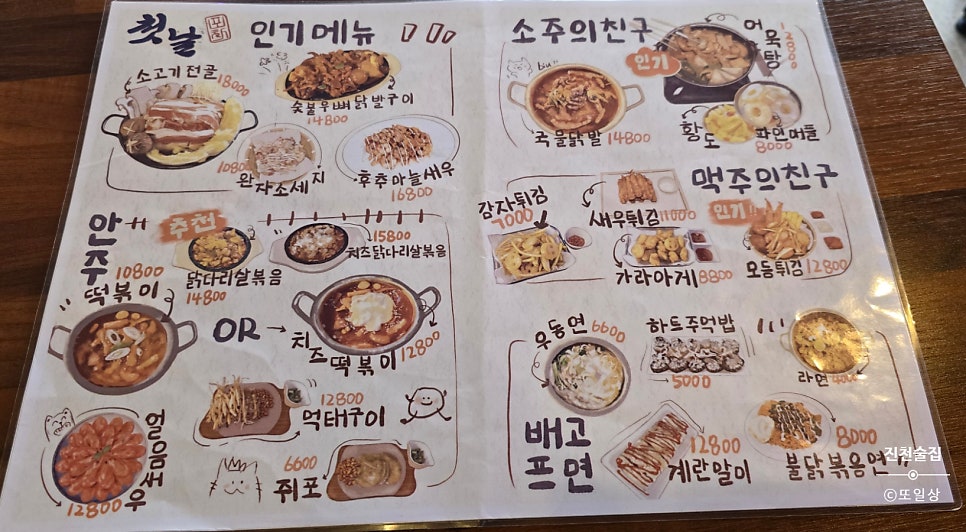 첫날
인기메뉴
소고기전골 18000
숯불우뼈닭발구이
14800
10800
완자소세지
후추마늘새우
16800
안주
추천
15800
치즈닭다리살볶음
닭다리살볶음
14800
10800
떡볶이
OR
치즈
떡볶이 12800
12800
먹태구이
얼음새우
12800
6600
쥐포
소주의친구
인기
어묵탕
12800
국물닭발 14800
황도
파인애플
8000
맥주의친구
인기
감자튀김
7000
새우튀김 11000
가라아게 8800
모듬튀김 12800
배고프면
우동면 6600
하트주먹밥
5000
라면 4000
12800
계란말이
8000
불닭볶음면
진천술집
ⓒ또일상